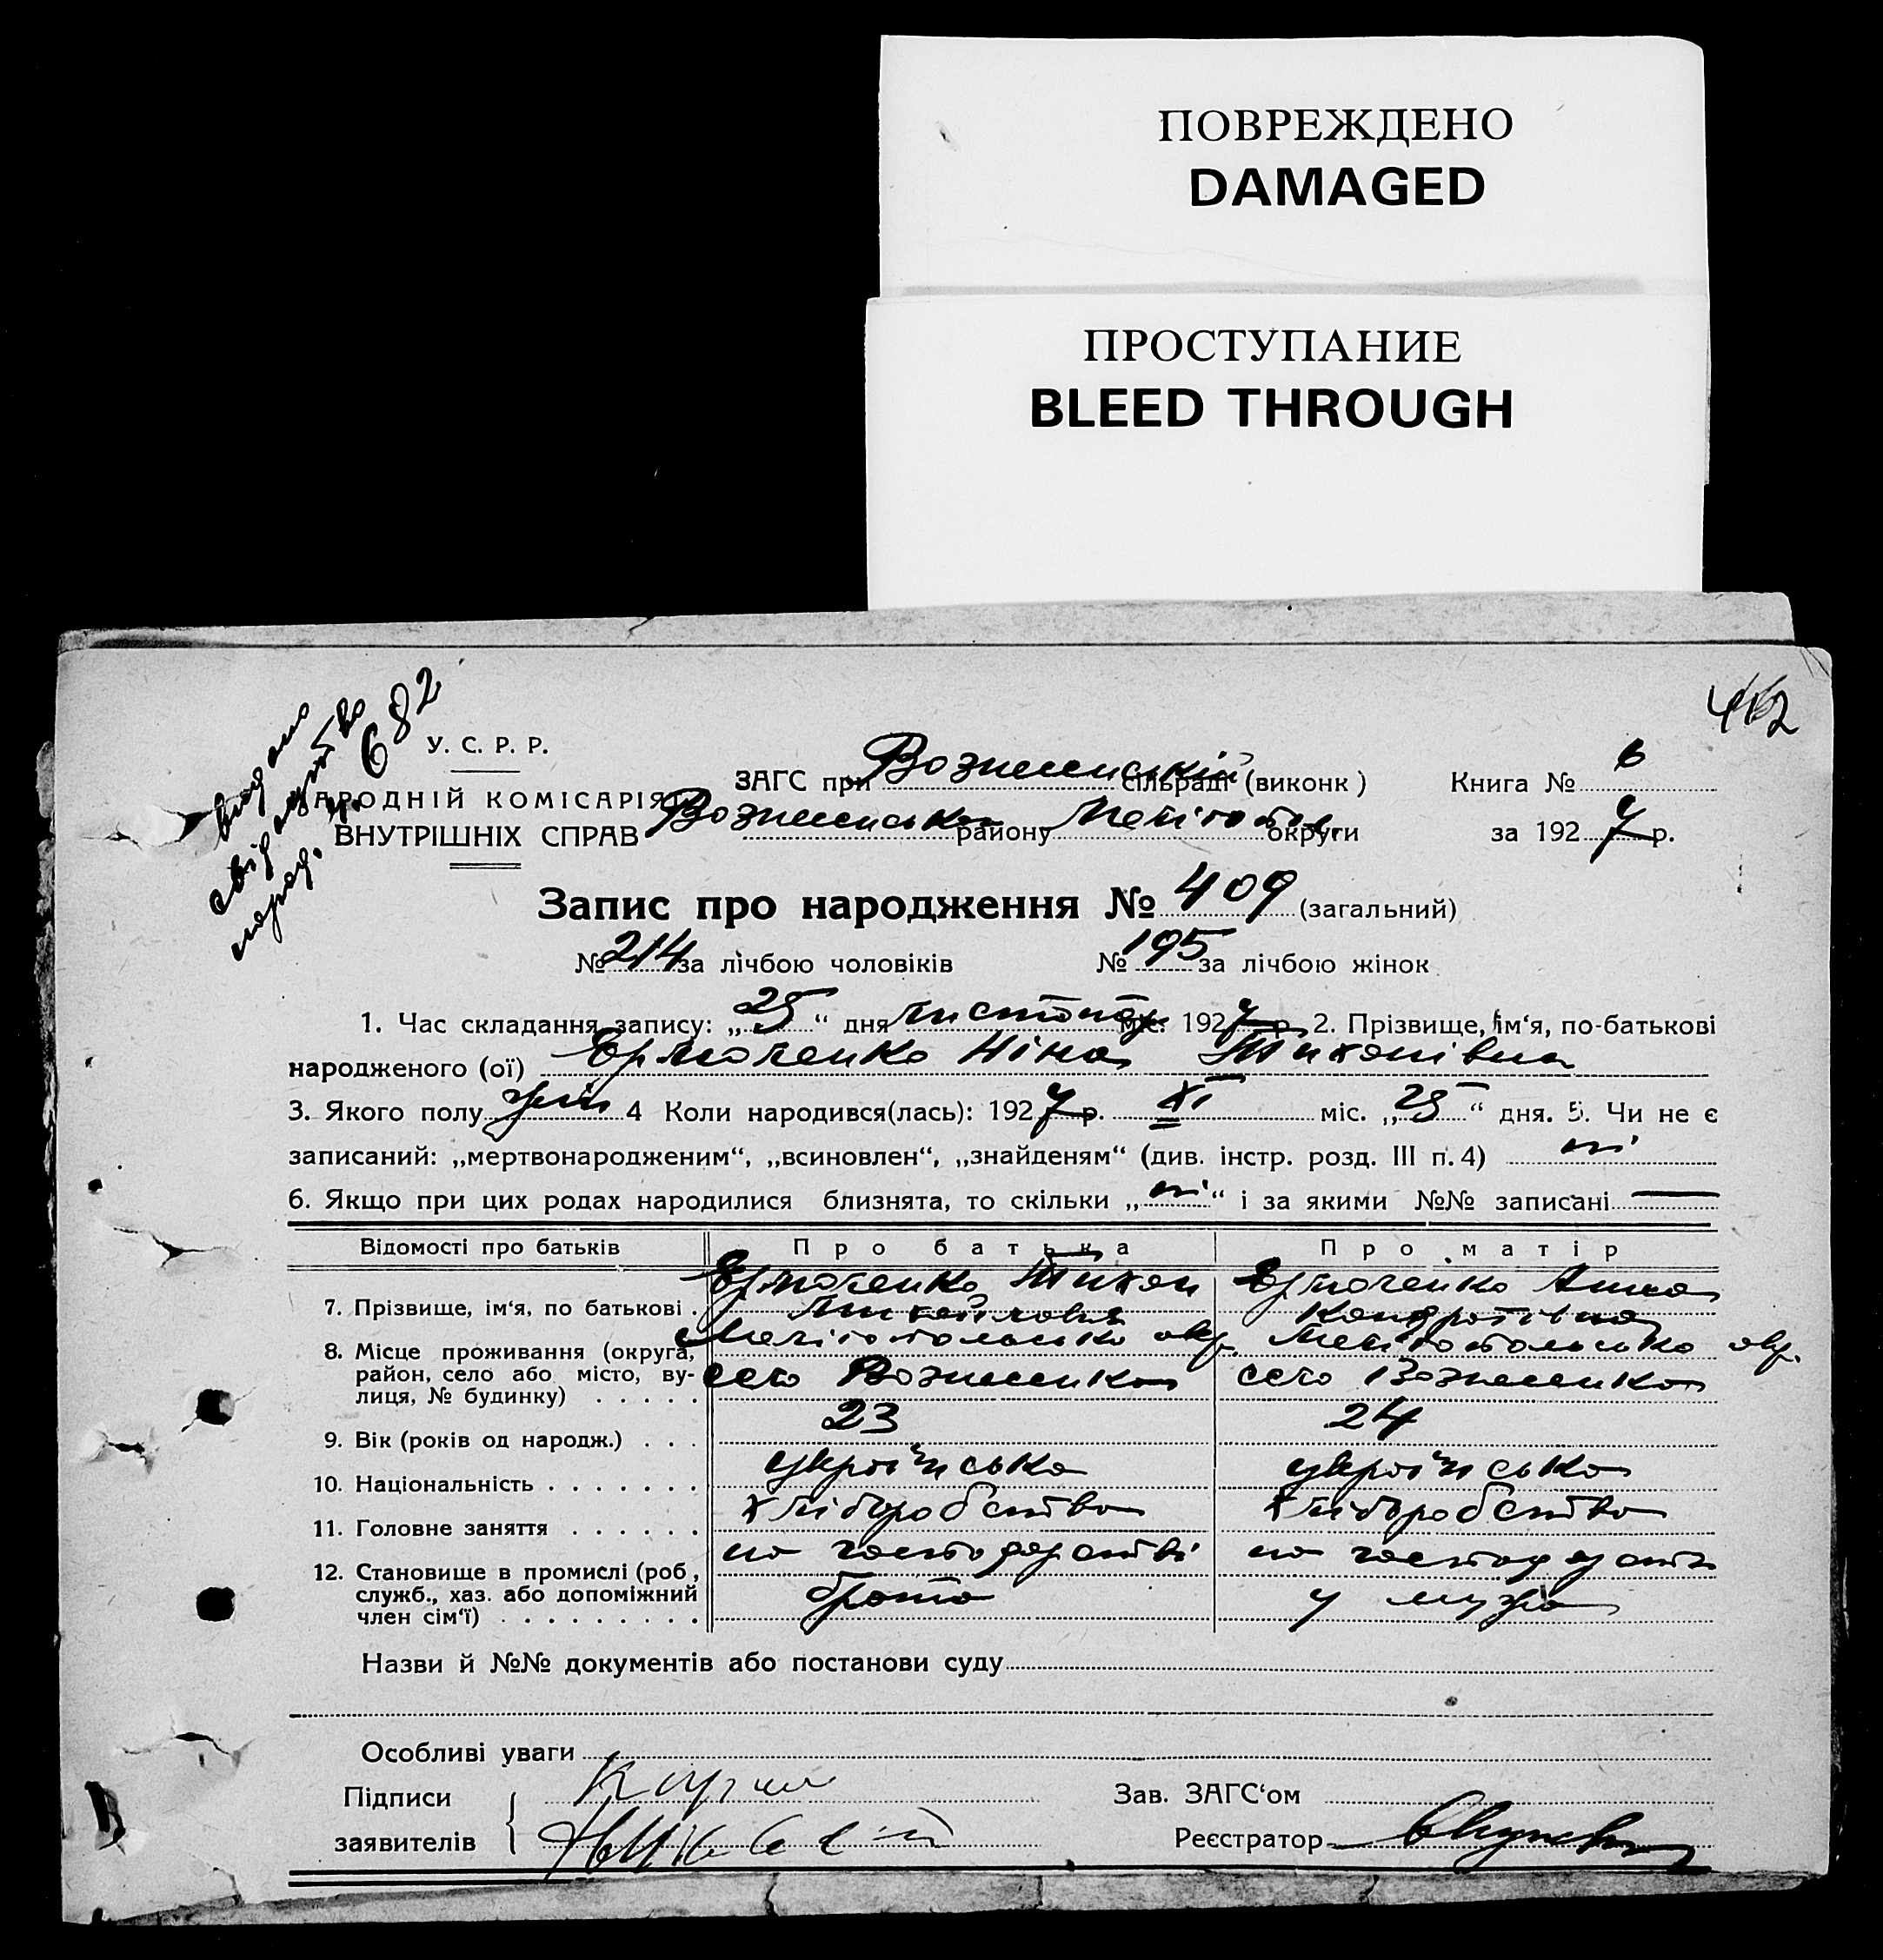 ПОВРЕЖДЕНО
DAMAGED
ПРОСТУПАНИЕ
BLEED THROUGH
412
видано
свідоцтво
народ. № 682
У. С. Р. Р.
АРОДНІЙ КОМІСАРІЯТ
ВНУТРІШНІХ СПРАВ
ЗАГС при Вознесенській сільраді (виконк) Книга № 6
Вознесенсько району Мелітопол. округи за 1927 р.
Запис про народження № 409 (загальний)
№ 214 за лічбою чоловіків № 195 за лічбою жінок
1. Час складання запису: „25“ дня листопад міс. 1927 р. 2. Прізвище, ім‘я, по-батькові
народженого (ої) Ермоченко Ніна Тихонівна
3. Якого полу жін 4 Коли народився(лась): 1927 р. XI міс. „25“ дня. 5. Чи не є
записаний: „мертвонародженим“, „всиновлен“, „знайденям“ (див. інстр. розд. III п. 4) ні
6. Якщо при цих родах народилися близнята, то скільки „ні“ і за якими №№ записані —
Відомості про батьків Про батька Про матір
7. Прізвище, ім‘я, по батькові . Ермоченко Тихон Михайлович Ермоченко Анна Кондратівна
8. Місце проживання (округа, Мелітопольсько окр. Мелітопольсько окр.
район, село або місто, ву- село Вознесенка село Вознесенка
лиця, № будинку) . . . . .
9. Вік (років од народж.) . . . 23 24
10. Національність . . . . . . . українська українська
11. Головне заняття . . . . . . хліборобство хліборобство
12. Становище в промислі (роб, на господарстві на господарстві
служб., хаз. або допоміжний брата у мужа
член сім‘ї) . . . . . . . . .
Назви й №№ документів або постанови суду
Особливі уваги
Підписи Зав. ЗАГС‘ом
заявителів Реєстратор